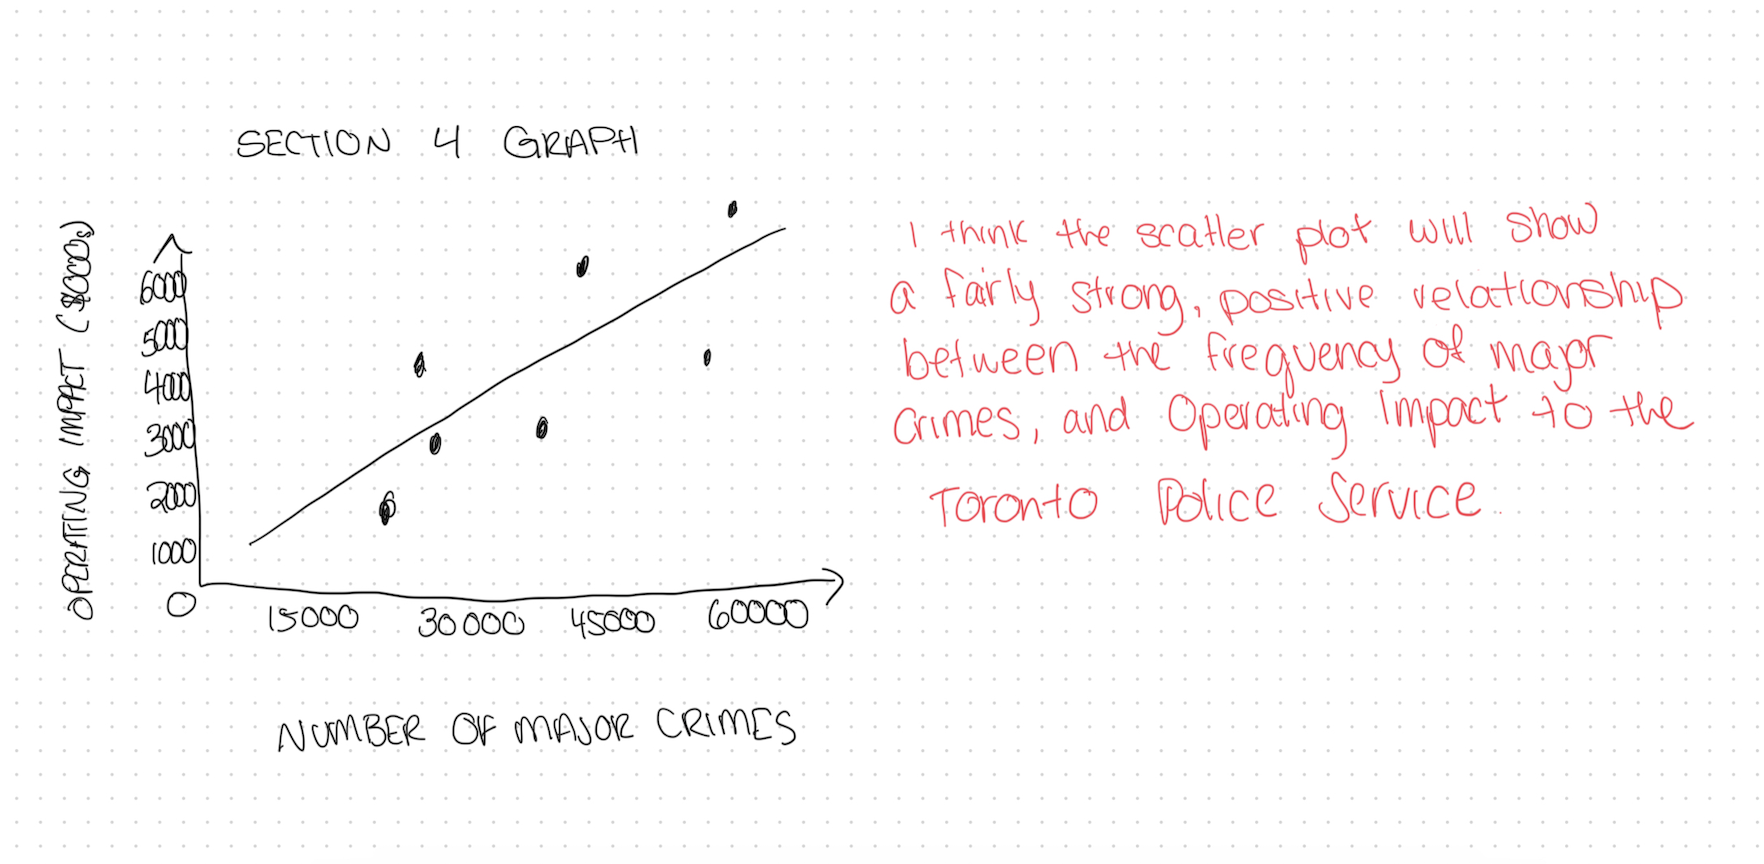 SECTION 4 GRAPH
OPERATING IMPACT ($000s)
6000
5000
4000
3000
2000
1000
0
15000 30000 45000 60000
NUMBER OF MAJOR CRIMES
I think the scatter plot will show
a fairly strong, positive relationship
between the frequency of major
crimes, and Operating Impact to the
Toronto Police Service.